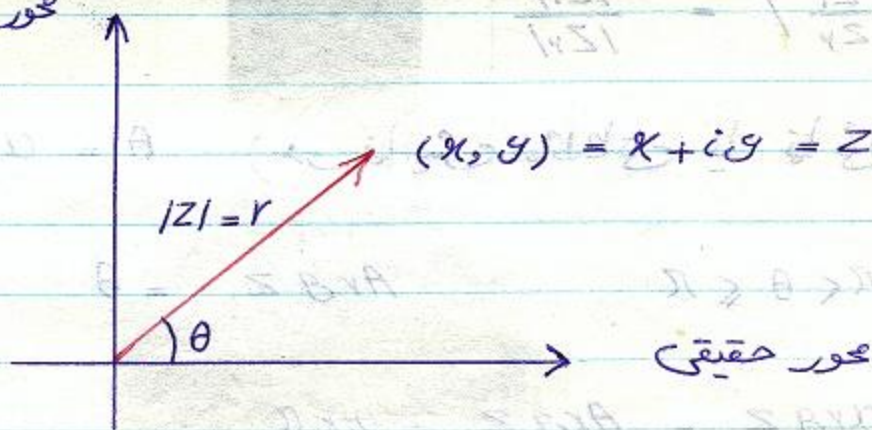 محور
(x, y) = x + iy = z
|z| = r
θ
محور حقیقی